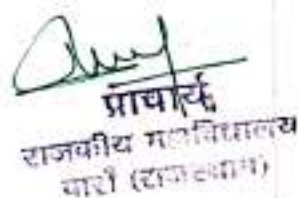 प्राचार्य
राजकीय महाविद्यालय
बारां (राजस्थान)